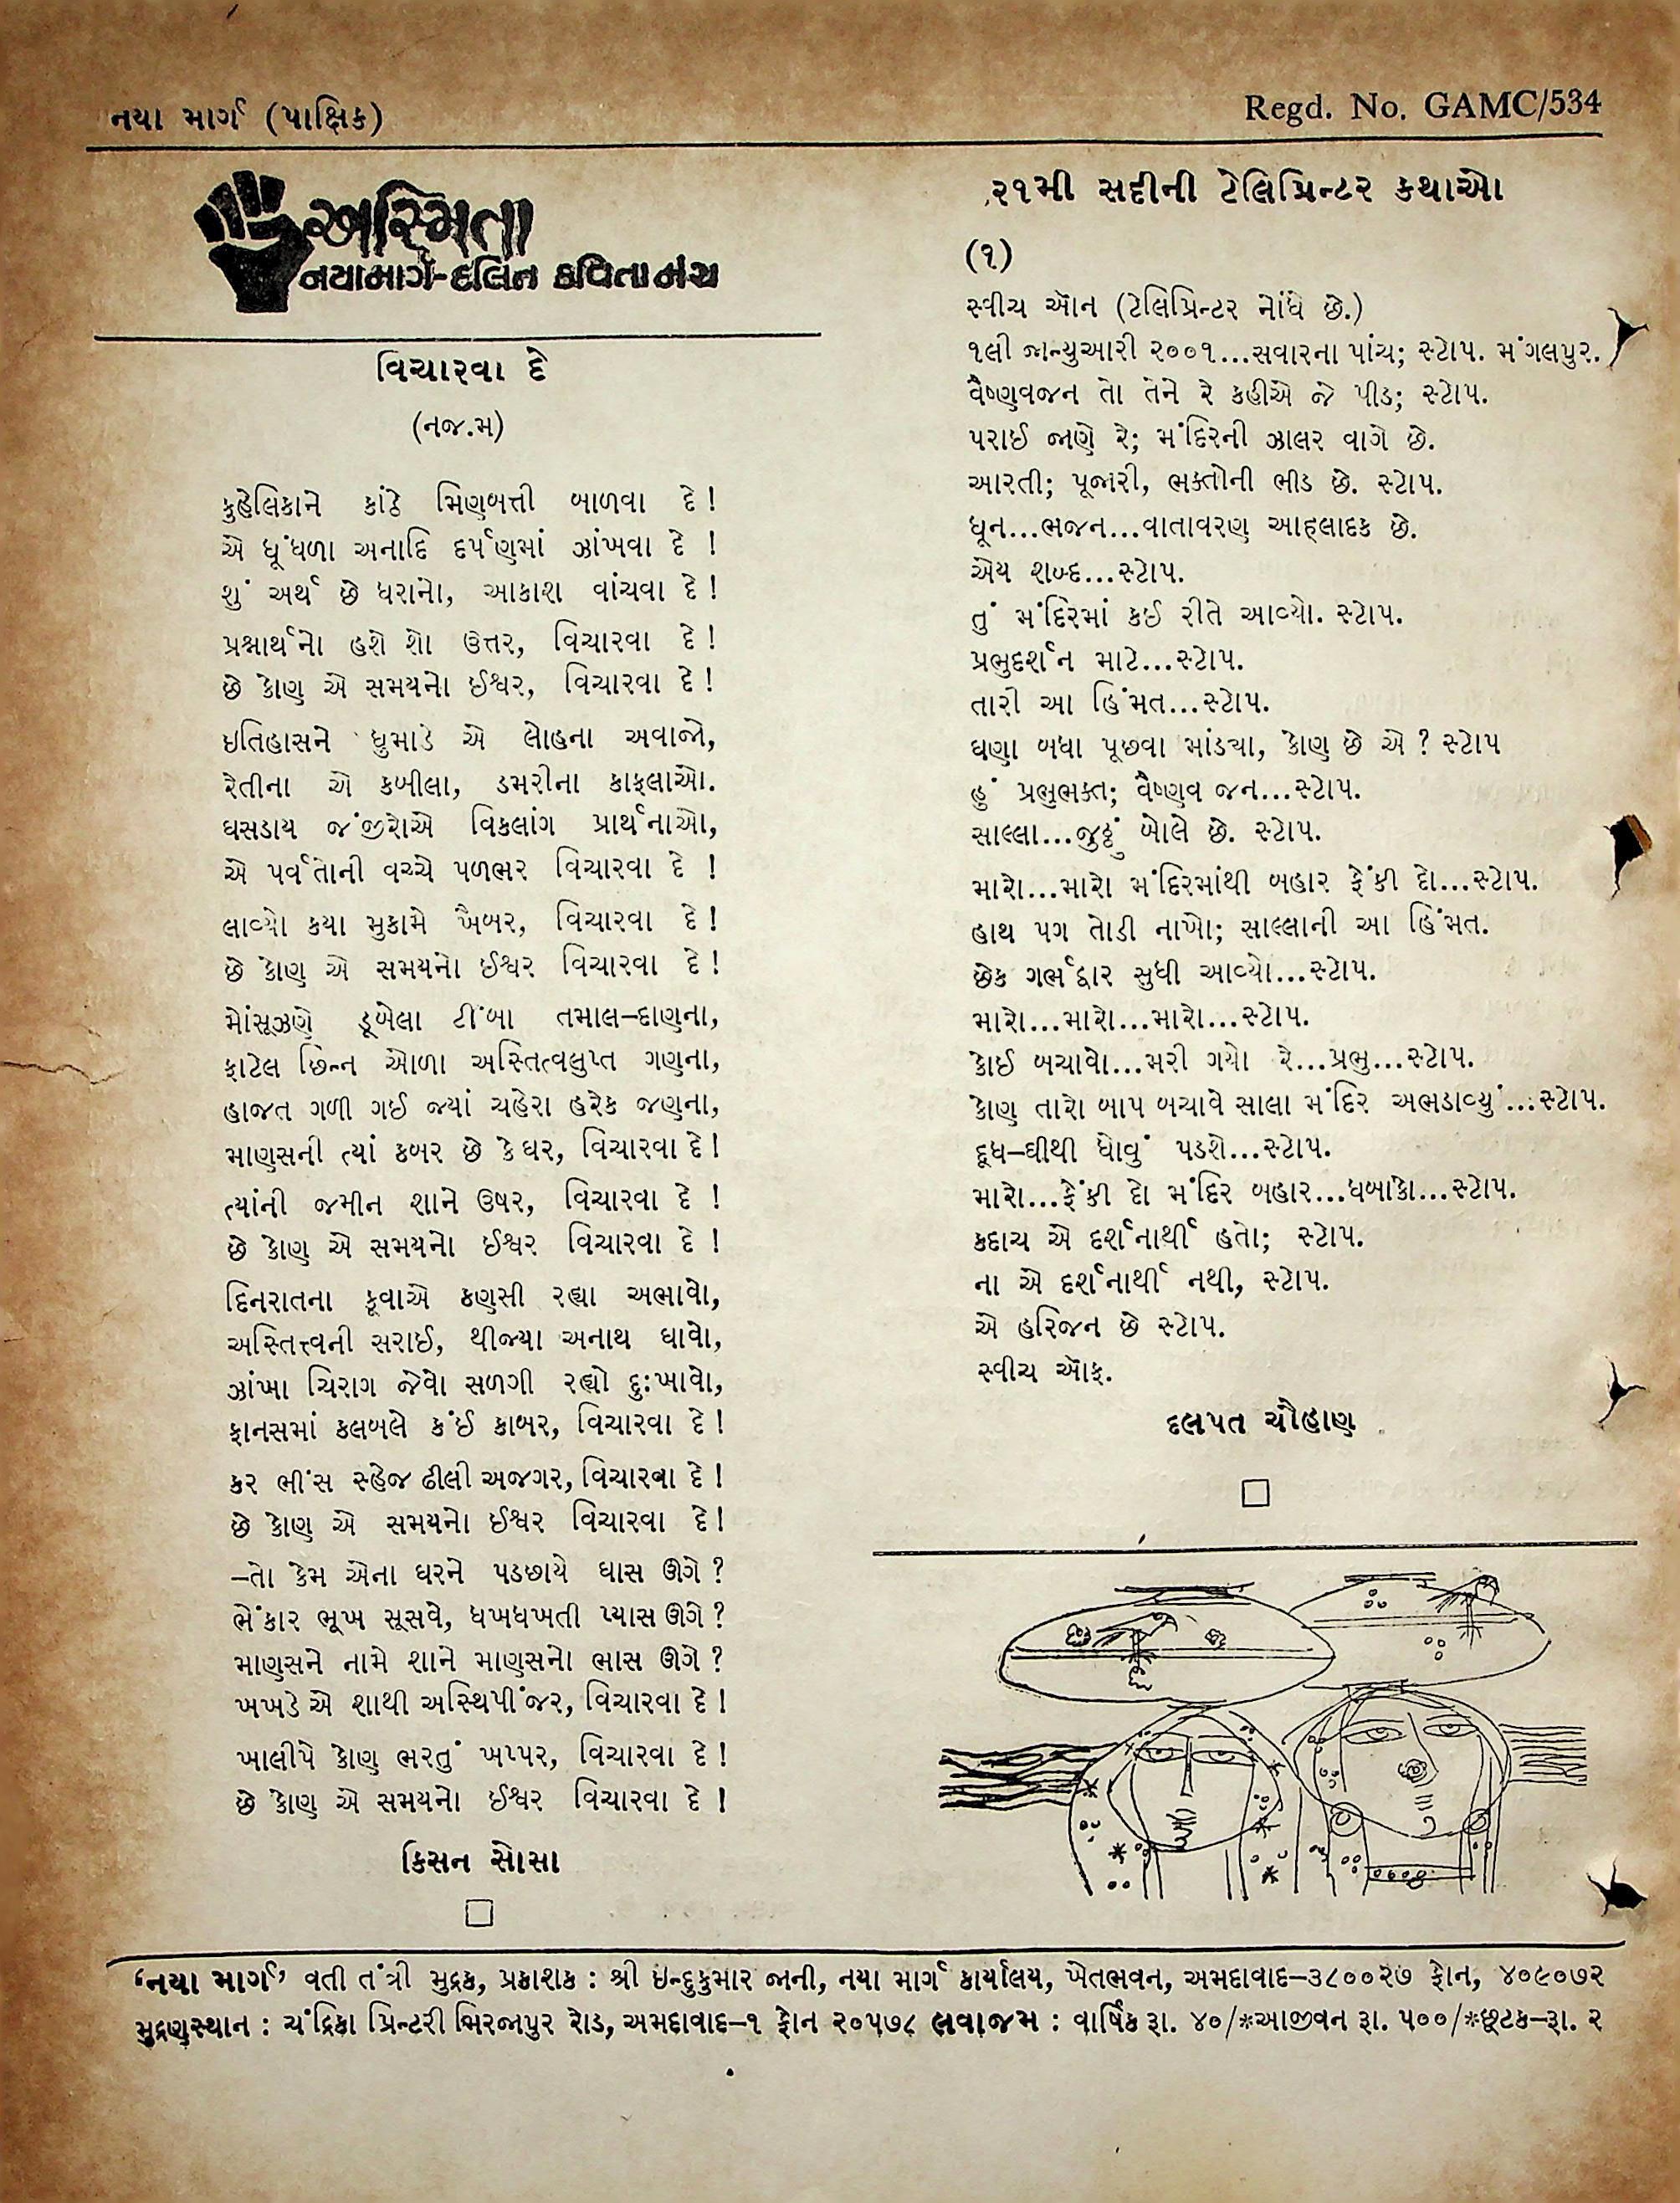 નયા માર્ગ (પાક્ષિક)
Regd. No. GAMC/534
અસ્મિતા
નયામાર્ગ-દલિત કવિતા મંચ
વિચારવા દે
(નજ.મ)
કુહેલિકાને કાંઠે મિણબત્તી બાળવા દે !
એ ધૂંધળા અનાદિ દર્પણમાં ઝાંખવા દે !
શું અર્થ છે ધરાનો, આકાશ વાંચવા દે !
પ્રશ્નાર્થનો હશે શો ઉત્તર, વિચારવા દે !
છે કોણ એ સમયનો ઈશ્વર, વિચારવા દે !
ઇતિહાસને ધુમાડે એ લોહના અવાજો,
રેતીના એ કબીલા, ડમરીના કાફલાઓ.
ઘસડાય જંજીરોએ વિકલાંગ પ્રાર્થનાઓ,
એ પર્વતોની વચ્ચે પળભર વિચારવા દે !
લાવ્યો કયા મુકામે ખૈબર, વિચારવા દે !
છે કોણ એ સમયનો ઈશ્વર વિચારવા દે !
મોંસૂઝણે ડૂબેલા ટીંબા તમાલ-દાણના,
ફાટેલ છિન્ન ઓળા અસ્તિત્વલુપ્ત ગણના,
હાજત ગળી ગઈ જ્યાં ચહેરા હરેક જણના,
માણસની ત્યાં કબર છે કે ઘર, વિચારવા દે !
ત્યાંની જમીન શાને ઉષર, વિચારવા દે !
છે કોણ એ સમયનો ઈશ્વર વિચારવા દે !
દિનરાતના કૂવાએ કણસી રહ્યા અભાવો,
અસ્તિત્ત્વની સરાઈ, થીજ્યા અનાથ ઘાવો,
ઝાંખા ચિરાગ જેવો સળગી રહ્યો દુઃખાવો,
ફાનસમાં કલબલે કંઈ કાબર, વિચારવા દે !
કર ભીંસ સ્હેજ ઢીલી અજગર, વિચારવા દે !
છે કોણ એ સમયનો ઈશ્વર વિચારવા દે !
–તો કેમ એના ઘરને પડછાયે ઘાસ ઊગે ?
ભેંકાર ભૂખ સૂસવે, ધખધખતી પ્યાસ ઊગે ?
માણસને નામે શાને માણસનો ભાસ ઊગે ?
ખખડે એ શાથી અસ્થિપીંજર, વિચારવા દે !
ખાલીપે કોણ ભરતું ખપ્પર, વિચારવા દે !
છે કોણ એ સમયનો ઈશ્વર વિચારવા દે !
કિસન સોસા
૨૧મી સદીની ટેલિપ્રિન્ટર કથાઓ
(૧)
સ્વીચ ઓન (ટેલિપ્રિન્ટર નોંધે છે.)
૧લી જાન્યુઆરી ૨૦૦૧...સવારના પાંચ; સ્ટોપ. મંગલપુર.
વૈષ્ણવજન તો તેને રે કહીએ જે પીડ; સ્ટોપ.
પરાઈ જાણે રે; મંદિરની ઝાલર વાગે છે.
આરતી; પૂજારી, ભક્તોની ભીડ છે. સ્ટોપ.
ધૂન...ભજન...વાતાવરણ આહ્‌લાદક છે.
એય શબ્દ...સ્ટોપ.
તું મંદિરમાં કઈ રીતે આવ્યો. સ્ટોપ.
પ્રભુદર્શન માટે...સ્ટોપ.
તારી આ હિંમત...સ્ટોપ.
ઘણા બધા પૂછવા માંડ્યા, કોણ છે એ ? સ્ટોપ
હું પ્રભુભક્ત; વૈષ્ણવ જન...સ્ટોપ.
સાલ્લા...જુઠ્ઠું બોલે છે. સ્ટોપ.
મારો...મારો મંદિરમાંથી બહાર ફેંકી દો...સ્ટોપ.
હાથ પગ તોડી નાખો; સાલ્લાની આ હિંમત.
છેક ગર્ભદ્વાર સુધી આવ્યો...સ્ટોપ.
મારો...મારો...મારો...સ્ટોપ.
કોઈ બચાવો...મરી ગયો રે...પ્રભુ...સ્ટોપ.
કોણ તારો બાપ બચાવે સાલા મંદિર અભડાવ્યું...સ્ટોપ.
દૂધ–ઘીથી ધોવું પડશે...સ્ટોપ.
મારો...ફેંકી દો મંદિર બહાર...ધબાકો...સ્ટોપ.
કદાચ એ દર્શનાર્થી હતો; સ્ટોપ.
ના એ દર્શનાર્થી નથી, સ્ટોપ.
એ હરિજન છે સ્ટોપ.
સ્વીચ ઓફ.
દલપત ચૌહાણ
‘નયા માર્ગ’ વતી તંત્રી મુદ્રક, પ્રકાશક : શ્રી ઇન્દુકુમાર જાની, નયા માર્ગ કાર્યાલય, ખેતભવન, અમદાવાદ–૩૮૦૦૨૭ ફોન, ૪૦૯૦૭૨
મુદ્રણસ્થાન : ચંદ્રિકા પ્રિન્ટરી મિરજાપુર રોડ, અમદાવાદ–૧ ફોન ૨૦૫૭૮ લવાજમ : વાર્ષિક રૂા. ૪૦/*આજીવન રૂા. ૫૦૦/*છૂટક–રૂા. ૨